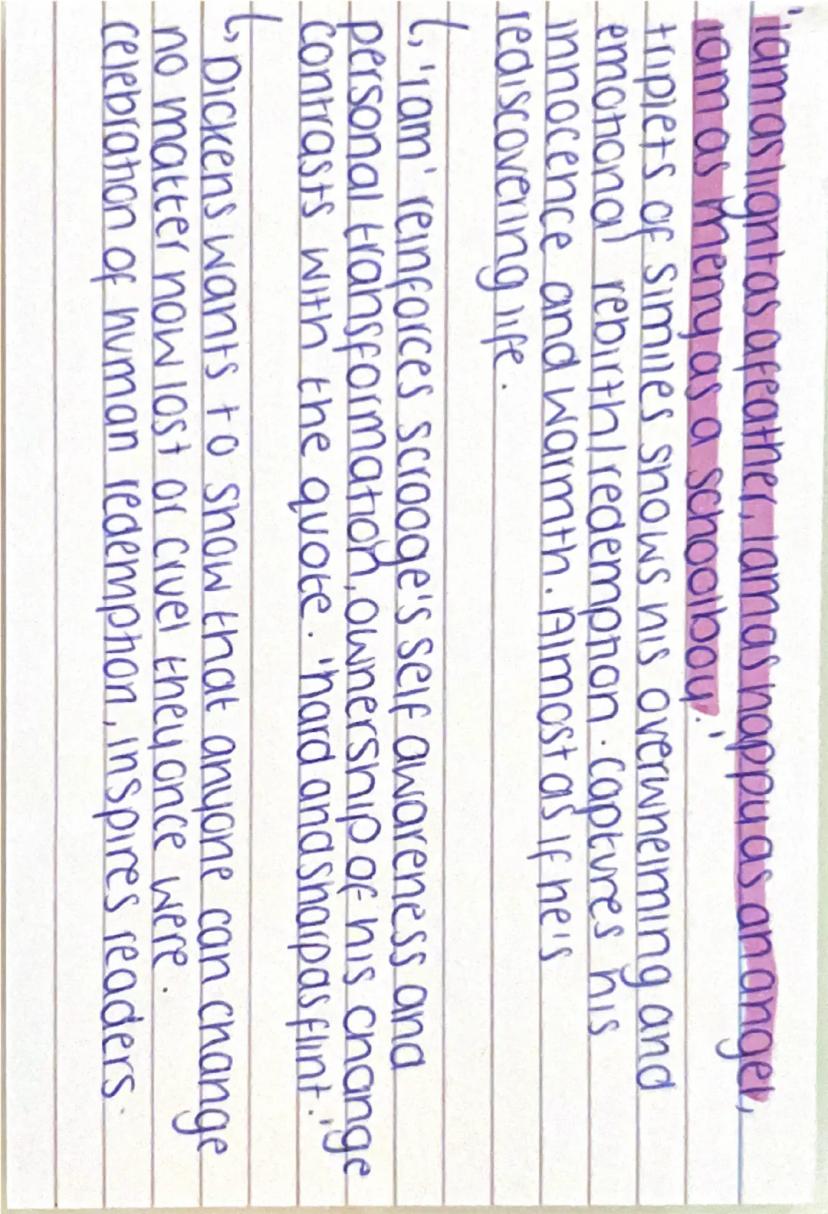 'iam as light as a feather, iam as happy as an angel,
iam as merry as a schoolboy.'
triplets of similes shows his overwhelming and
emotional rebirth/redemption. captures his
innocence and warmth. Almost as if he's
rediscovering life.
↳ 'iam' reinforces scrooge's self awareness and
personal transformation, ownership of his change
contrasts with the quote. 'hard and sharp as flint.'
↳ Dickens wants to show that anyone can change
no matter how lost or cruel they once were.
celebration of human redemption, inspires readers.